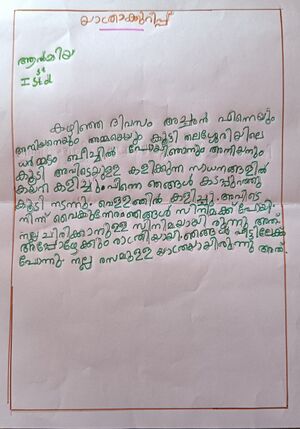 യാത്രാക്കുറിപ്പ്
ആൽമിയ
I Std
കഴിഞ്ഞ ദിവസം അച്ഛൻ എന്നെയും
അനിയനെയും അമ്മയെയും കൂട്ടി തലശ്ശേരിയിലെ
ധർമ്മടം ബീച്ചിൽ പോയി ഞാനും അനിയനും
കൂടി അവിടെയുള്ള കളിക്കുന്ന സാധനങ്ങളിൽ
കയറി കളിച്ചു. പിന്നെ ഞങ്ങൾ കടപ്പുറത്തു
കൂടി നടന്നു. വെള്ളത്തിൽ കളിച്ചു. അവിടെ
നിന്ന് വൈകുന്നേരം ഞങ്ങൾ സിനിമക്ക് പോയി.
നല്ല ചിരിക്കാനുള്ള സിനിമയായി രുന്നു അത്.
അപ്പോഴേക്കും രാത്രിയായി. ഞങ്ങൾ വീട്ടിലേക്ക്
പോന്നു. നല്ല രസമുള്ള യാത്രയായിരുന്നു അത്.